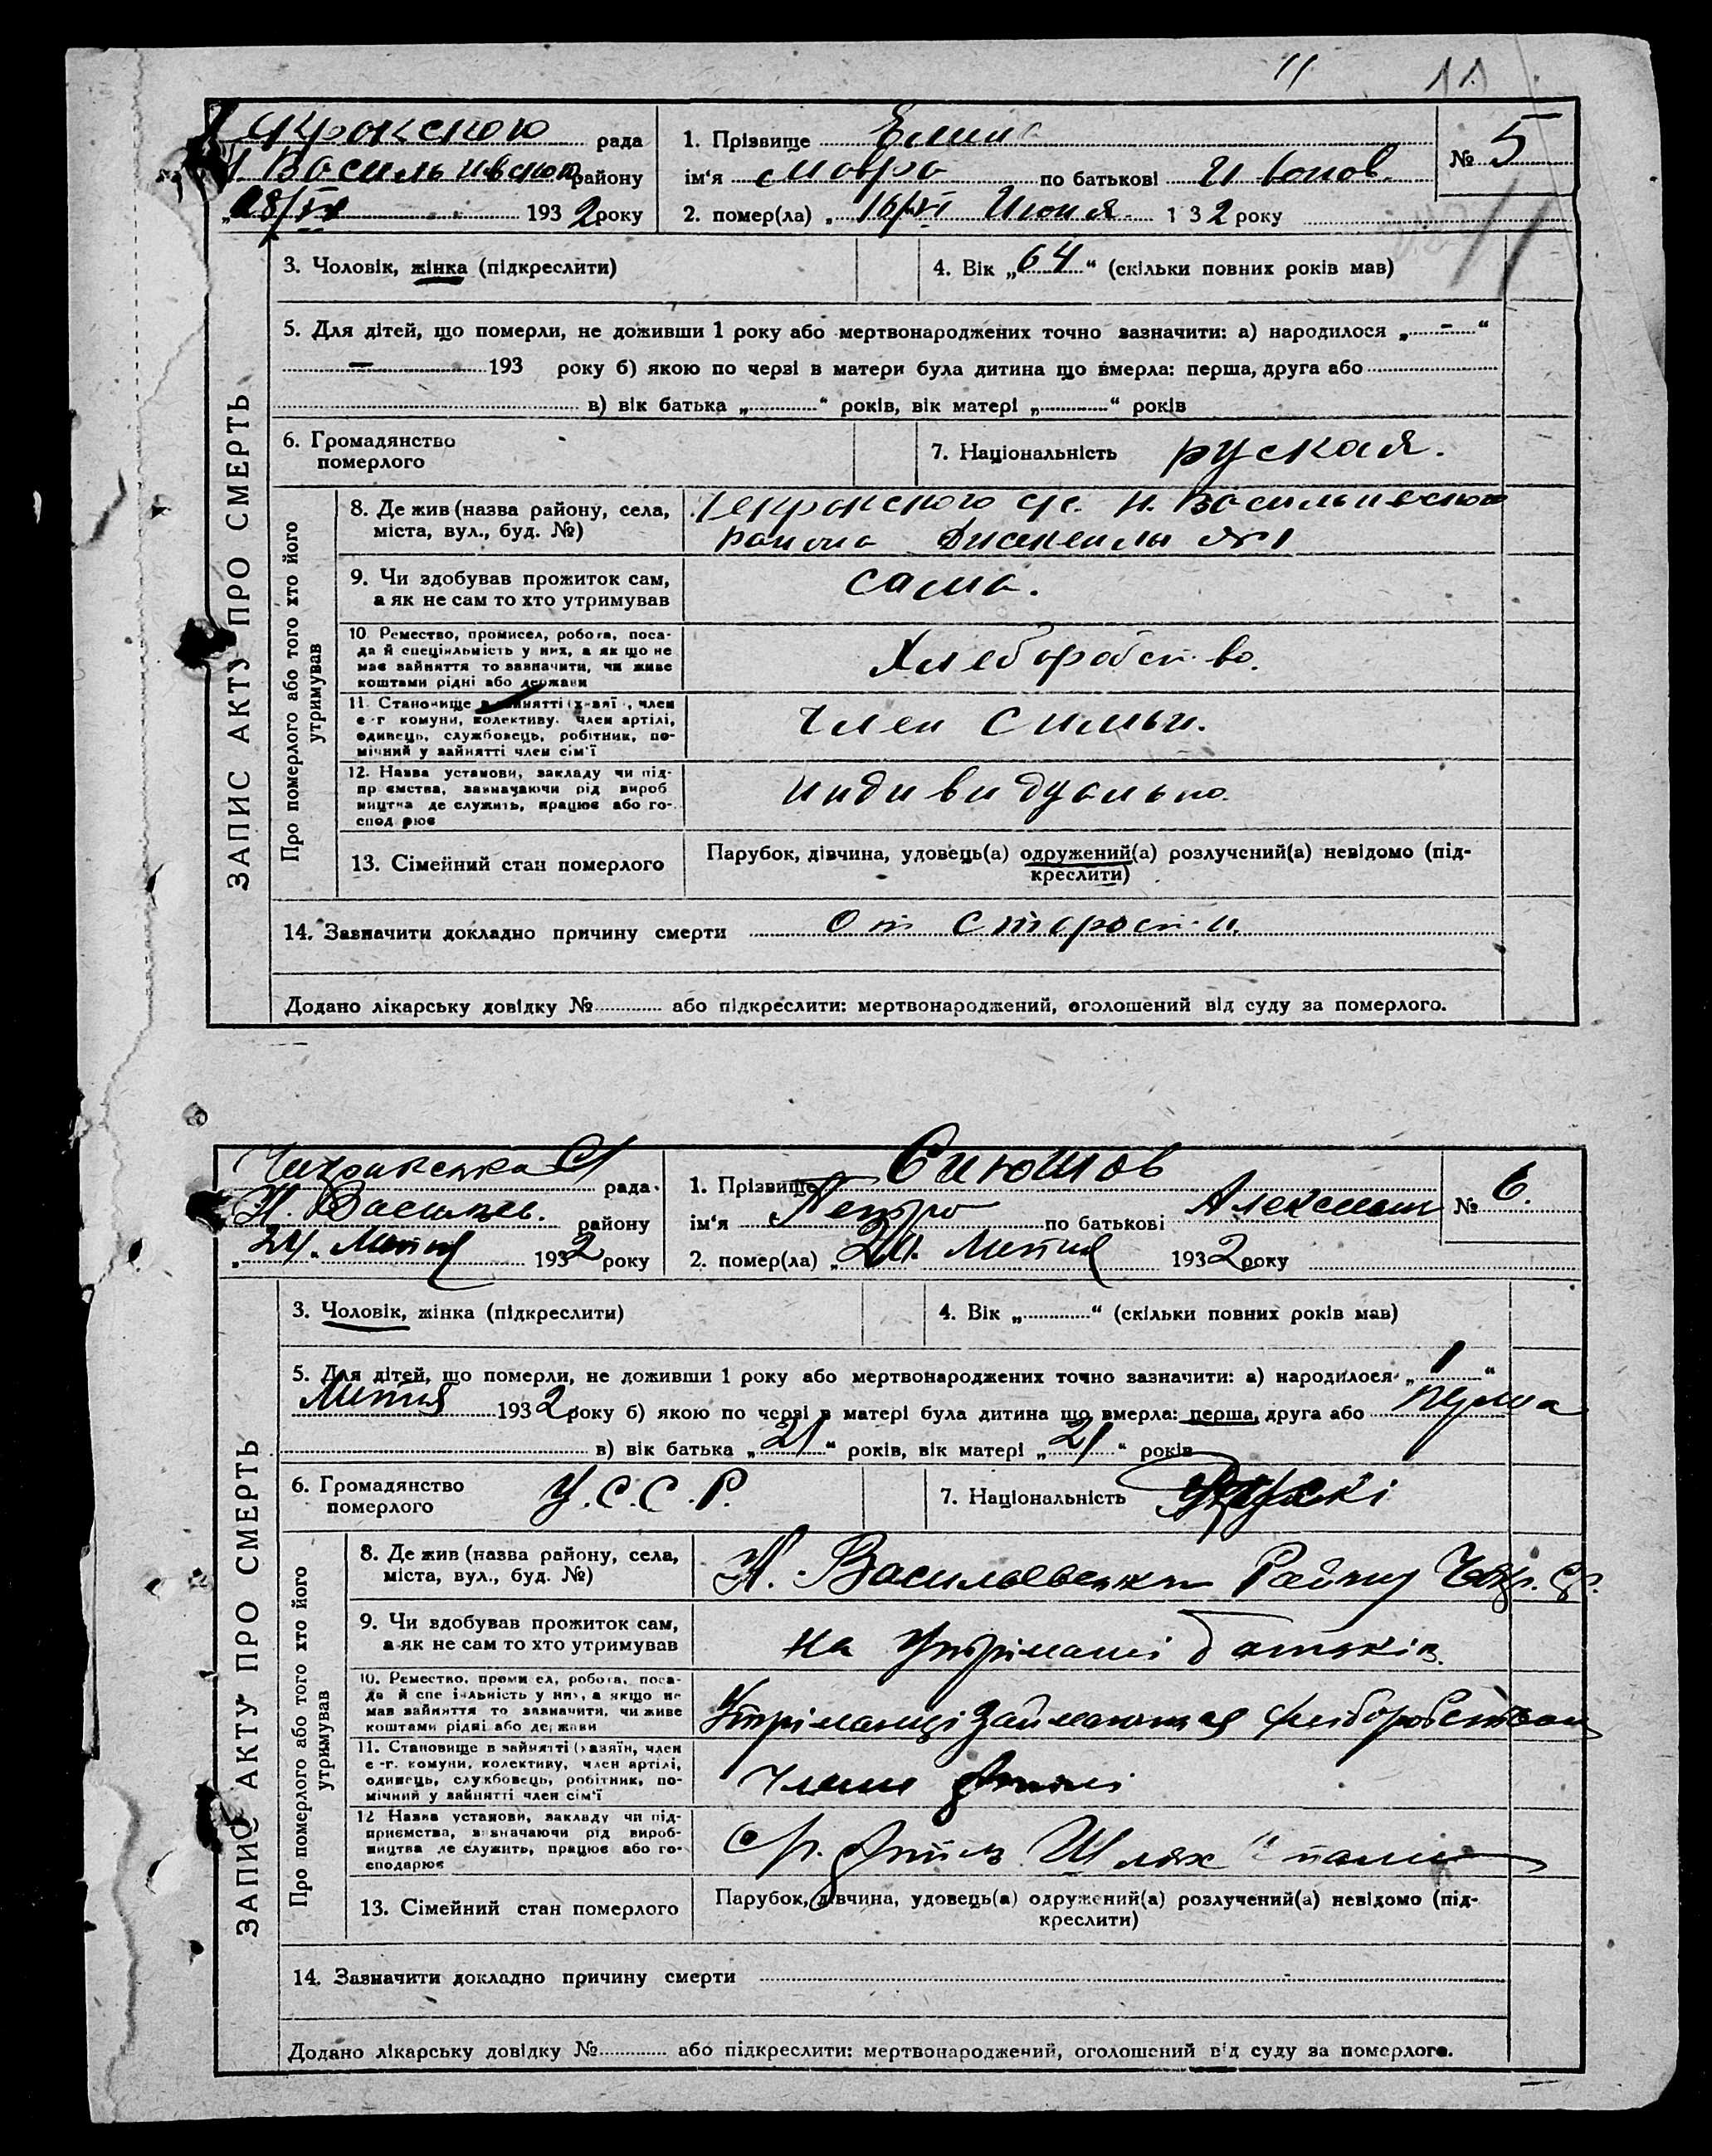 11 11
рада
району
28/VI 1932 року
1. Прізвище Елин
ім'я Мавра по батькові
2. помер(ла) „ 16/VI Июня 1 32 року
№ 5
ЗАПИС АКТУ ПРО СМЕРТЬ
3. Чоловік, жінка (підкреслити)
4. Вік „64“ (скільки повних років мав)
5. Для дітей, що померли, не доживши 1 року або мертвонароджених точно зазначити: а) народилося „ – “
– 193 року б) якою по черзі в матери була дитина що вмерла: перша, друга або
в) вік батька „ “ років, вік матері „ “ років
6. Громадянство
померлого
7. Національність руская.
Про померлого або того хто його
утримував
8. Де жив (назва району, села,
міста, вул., буд. №)
с/с. Н. Васильевского
района №1
9. Чи здобував прожиток сам,
а як не сам то хто утримував
сама.
10 Ремество, промисел, робота, поса-
да й спеціяльність у них, а як що не
має зайняття то зазначити, чи живе
коштами рідні або держави
Хлеборобство.
11. Становище в зайнятті (хазяї , член
с-г комуни, колективу. член артілі,
одинець, службовець, робітник, по-
мічний у зайнятті член сім'ї
член симьи.
12. Назва установи, закладу чи під-
пр ємства, зазначаючи рід вироб
ництва де служить, працює або го-
спод рює
индивидуально.
13. Сімейний стан померлого
Парубок, дівчина, удовець(а) одружений(а) розлучений(а) невідомо (під-
креслити)
14. Зазначити докладно причину смерти от старости.
Додано лікарську довідку № або підкреслити: мертвонароджений, оголошений від суду за померлого.
рада
Н. Васильев. району
„24. Липня 1932 року
1. Прізвище Силюшов
ім'я Петро по батькові
2. помер(ла) „24. Липня 1932 року
№ 6.
ЗАПИС АКТУ ПРО СМЕРТЬ
3. Чоловік, жінка (підкреслити)
4. Вік „ “ (скільки повних років мав)
5. Для дітей, що померли, не доживши 1 року або мертвонароджених точно зазначити: а) народилося „ 1 “
Липня 1932 року б) якою по черзі в матері була дитина що вмерла: перша, друга або перша
в) вік батька „21“ років, вік матері „21“ років
6. Громадянство
померлого
У.С.С.Р.
7. Національність
Про померлого або того хто його
утримував
8. Де жив (назва району, села,
міста, вул., буд. №)
Н. Васильевський Району
9. Чи здобував прожиток сам,
а як не сам то хто утримував
на утрімані батьків.
10. Ремество, проми ел, робота, поса-
да й спе іяльність у них, а якщо не
мав зайняття то зазначити, чи живе
коштами рідні або держави
11. Становище в зайнятті (хазяїн, член
с-г. комуни, колективу, член артілі,
одинець, службовець, робітник, по-
мічний у зайнятті член сім'ї
члени Артілі
12 Назва установи, закладу чи під-
приємства, зазначаючи рід вироб-
ництва де служить, працює або го-
сподарює
Артіль Шлях
13. Сімейний стан померлого
Парубок, дівчина, удовець(а) одружений(а) розлучений(а) невідомо (під-
креслити)
14. Зазначити докладно причину смерти
Додано лікарську довідку № або підкреслити: мертвонароджений, оголошений від суду за померлого.